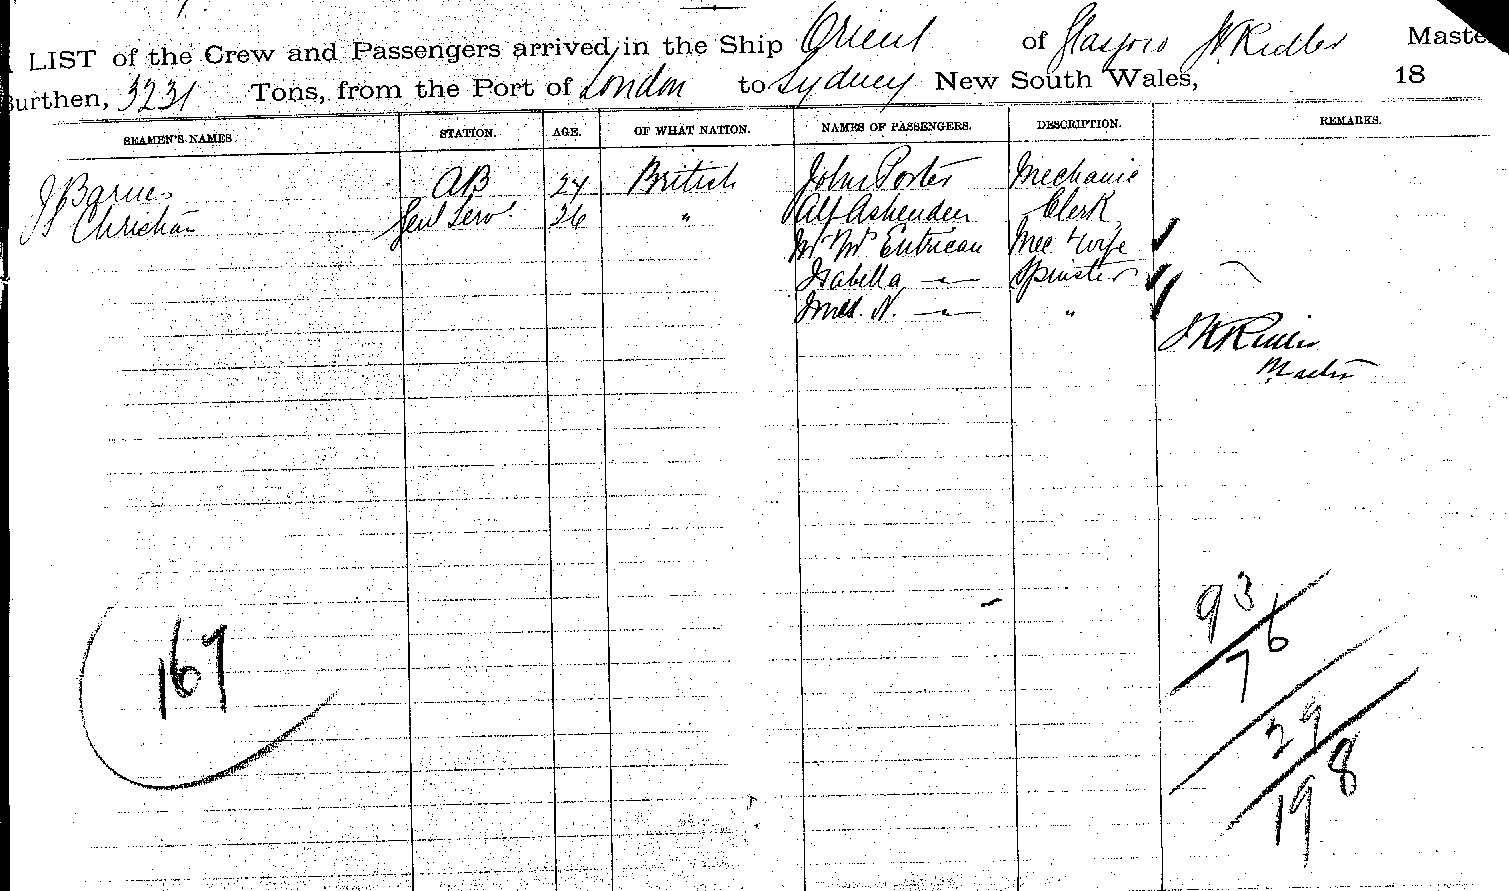 LIST of the Crew and Passengers arrived in the Ship Orient of Glasgow Ridler Maste
Burthen, 3231 Tons, from the Port of London to Sydney New South Wales, 18
SEAMEN'S NAMES. STATION. AGE. OF WHAT NATION. NAMES OF PASSENGERS. DESCRIPTION. REMARKS.
J Barnes AB 24 British John Porter Mechanic
Christian Genl Servt 26 " Alf Ashenden Clerk
Mr Mrs Entrican Mec & wife
Isabella — Spinster
N. — "
Ridler
Master
93
6
7
167
29
8
19